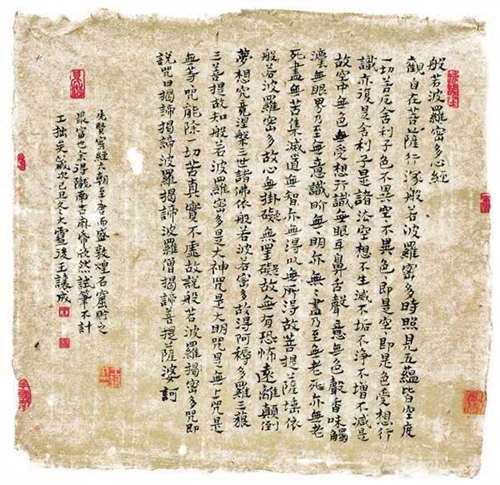 般若波羅密多心經
觀自在菩薩行深般若波羅密多時照見五蘊皆空度
一切苦厄舍利子色不異空、不異色、即是空、即是色受想行
識亦復是舍利子是諸法空想不生滅不垢不淨不增不減是
故空中無色無受想行識無眼耳鼻舌聲意無色聲香味觸
灋無眼界乃至無意識界無、明亦無、盡乃至無老死亦無老
死盡無苦集滅道無智亦無得以無所得故菩提薩埵依
般若波羅密多故心無掛礙無罣礙故無有恐怖遠離顛倒
夢想究竟涅槃三世諸佛依般若波若密多故得阿耨多羅三藐
三菩提故知般若波羅密多是大神咒是大明咒是無上咒是
無等咒能除一切苦真實不虛故說般若波羅揭密多咒即
說咒曰揭諦揭諦波羅揭諦波羅僧揭諦菩提薩婆訶
先賢寫經六朝至唐而盛敦煌石窟之
最富也余得隴南古麻帋欣然試筆不計
工拙矣歲次己丑冬大雪後王讓成